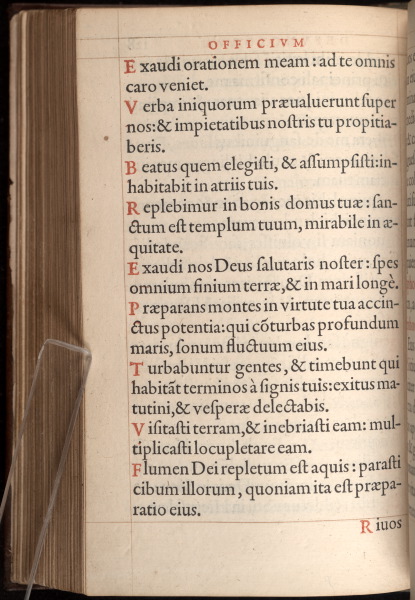 OFFICIVM
Exaudi orationem meam : ad te omnis
caro veniet.
Verba iniquorum præualuerunt ſuper
nos: & impietatibus noſtris tu propitia-
beris.
Beatus quem elegiſti, & aſſumpſiſti: in-
habitabit in atriis tuis.
Replebimur in bonis domus tuæ : ſan-
ctum eſt templum tuum, mirabile in æ-
quitate.
Exaudi nos Deus ſalutaris noſter : ſpes
omnium finium terræ, & in mari longè.
Præparans montes in virtute tua accin-
ctus potentia: qui cōturbas profundum
maris, ſonum fluctuum eius.
Turbabuntur gentes, & timebunt qui
habitāt terminos à ſignis tuis: exitus ma-
tutini, & veſperæ delectabis.
Viſitaſti terram, & inebriaſti eam: mul-
tiplicaſti locupletare eam.
Flumen Dei repletum eſt aquis : paraſti
cibum illorum, quoniam ita eſt præpa-
ratio eius.
Riuos